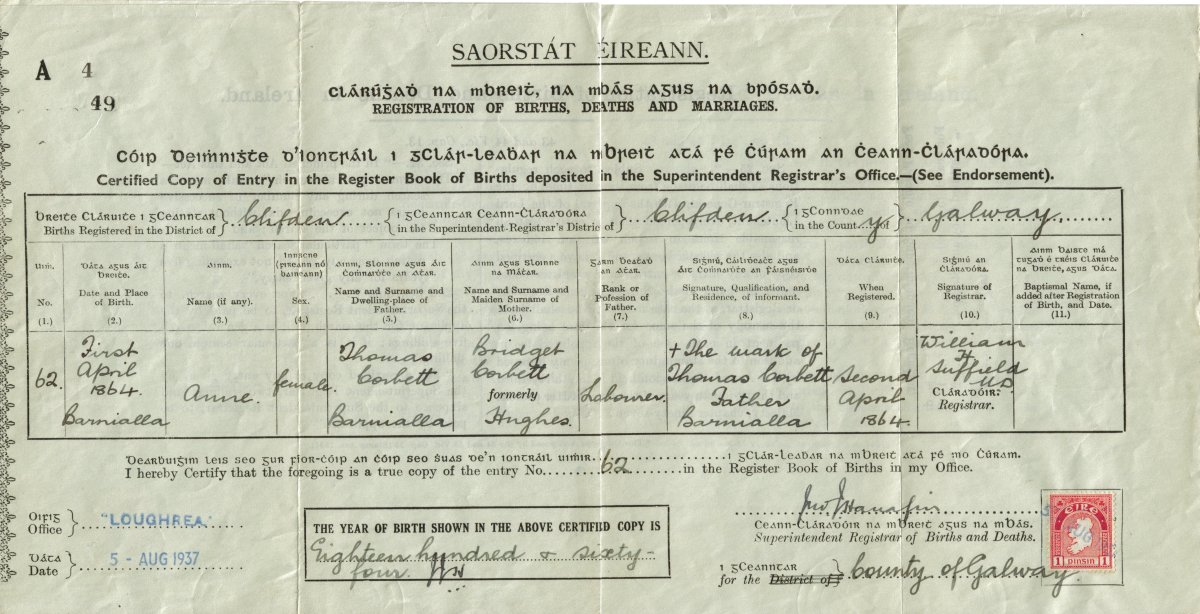 SAORSTÁT ÉIREANN.
A 4
49
CLÁRÚĠAḊ NA MBREIṪ, NA MBÁS AGUS NA BPÓSAḊ.
REGISTRATION OF BIRTHS, DEATHS AND MARRIAGES.
Cóip Ḋeiṁniġṫe d'Iontráil i gClár-leaḃar na mBreiṫ atá fé Ċúram an Ċeann-Ċláraḋóra.
Certified Copy of Entry in the Register Book of Births deposited in the Superintendent Registrar's Office.—(See Endorsement).
Breiṫe Cláruiṫe i gCeanntar
Births Registered in the District of } Clifden
{ i gCeanntar Ceann-Ċláraḋóra
in the Superintendent-Registrar's District of } Clifden
{ i gConndae
in the County of } Galway
Uiṁ.
No.
(1.)
Dáta agus Áit Breiṫe.
Date and Place of Birth.
(2.)
Ainm.
Name (if any).
(3.)
Innscne (fireann nó baineann)
Sex.
(4.)
Ainm, Sloinne agus Áit Ċoṁnuiḋṫe an Aṫar.
Name and Surname and Dwelling-place of Father.
(5.)
Ainm agus Sloinne na Máṫar.
Name and Surname and Maiden Surname of Mother.
(6.)
Gairm Ḃeaṫaḋ an Aṫar.
Rank or Pofession of Father.
(7.)
Signature, Qualification, and Residence, of informant.
(8.)
Dáta Cláruiṫe.
When Registered.
(9.)
Siġniú an Ċláraḋóra.
Signature of Registrar.
(10.)
Ainm Baiste má tugaḋ é tréis Cláruiṫe na Breiṫe, agus Dáta.
Baptismal Name, if added after Registration of Birth, and Date.
(11.)
62.
First April 1864. Barnialla
Anne.
female.
Thomas Corbett Barnialla
Bridget Corbett formerly Hughes.
Labourer.
+ The mark of Thomas Corbett Father Barnialla
Second April 1864.
William H Suffield
CLÁRAḊÓIR.
Registrar.
Dearḃuiġim leis seo gur fíor-ċóip an ċóip seo ṡuas de'n iontráil uiṁir i gClár-leaḃar na mBreiṫ atá fé mo Ċúram.
I hereby Certify that the foregoing is a true copy of the entry No. 62 in the Register Book of Births in my Office.
Oifig
Office } "LOUGHREA"
Dáta
Date } 5 - AUG 1937
THE YEAR OF BIRTH SHOWN IN THE ABOVE CERTIFIED COPY IS
Eighteen hundred & sixty-
four.
Ceann-Cláraḋóir na mBreiṫ agus na mBás.
Superintendent Registrar of Births and Deaths.
i gCeanntar
for the District of } County of Galway.
ÉIRE
1 PINGIN 1